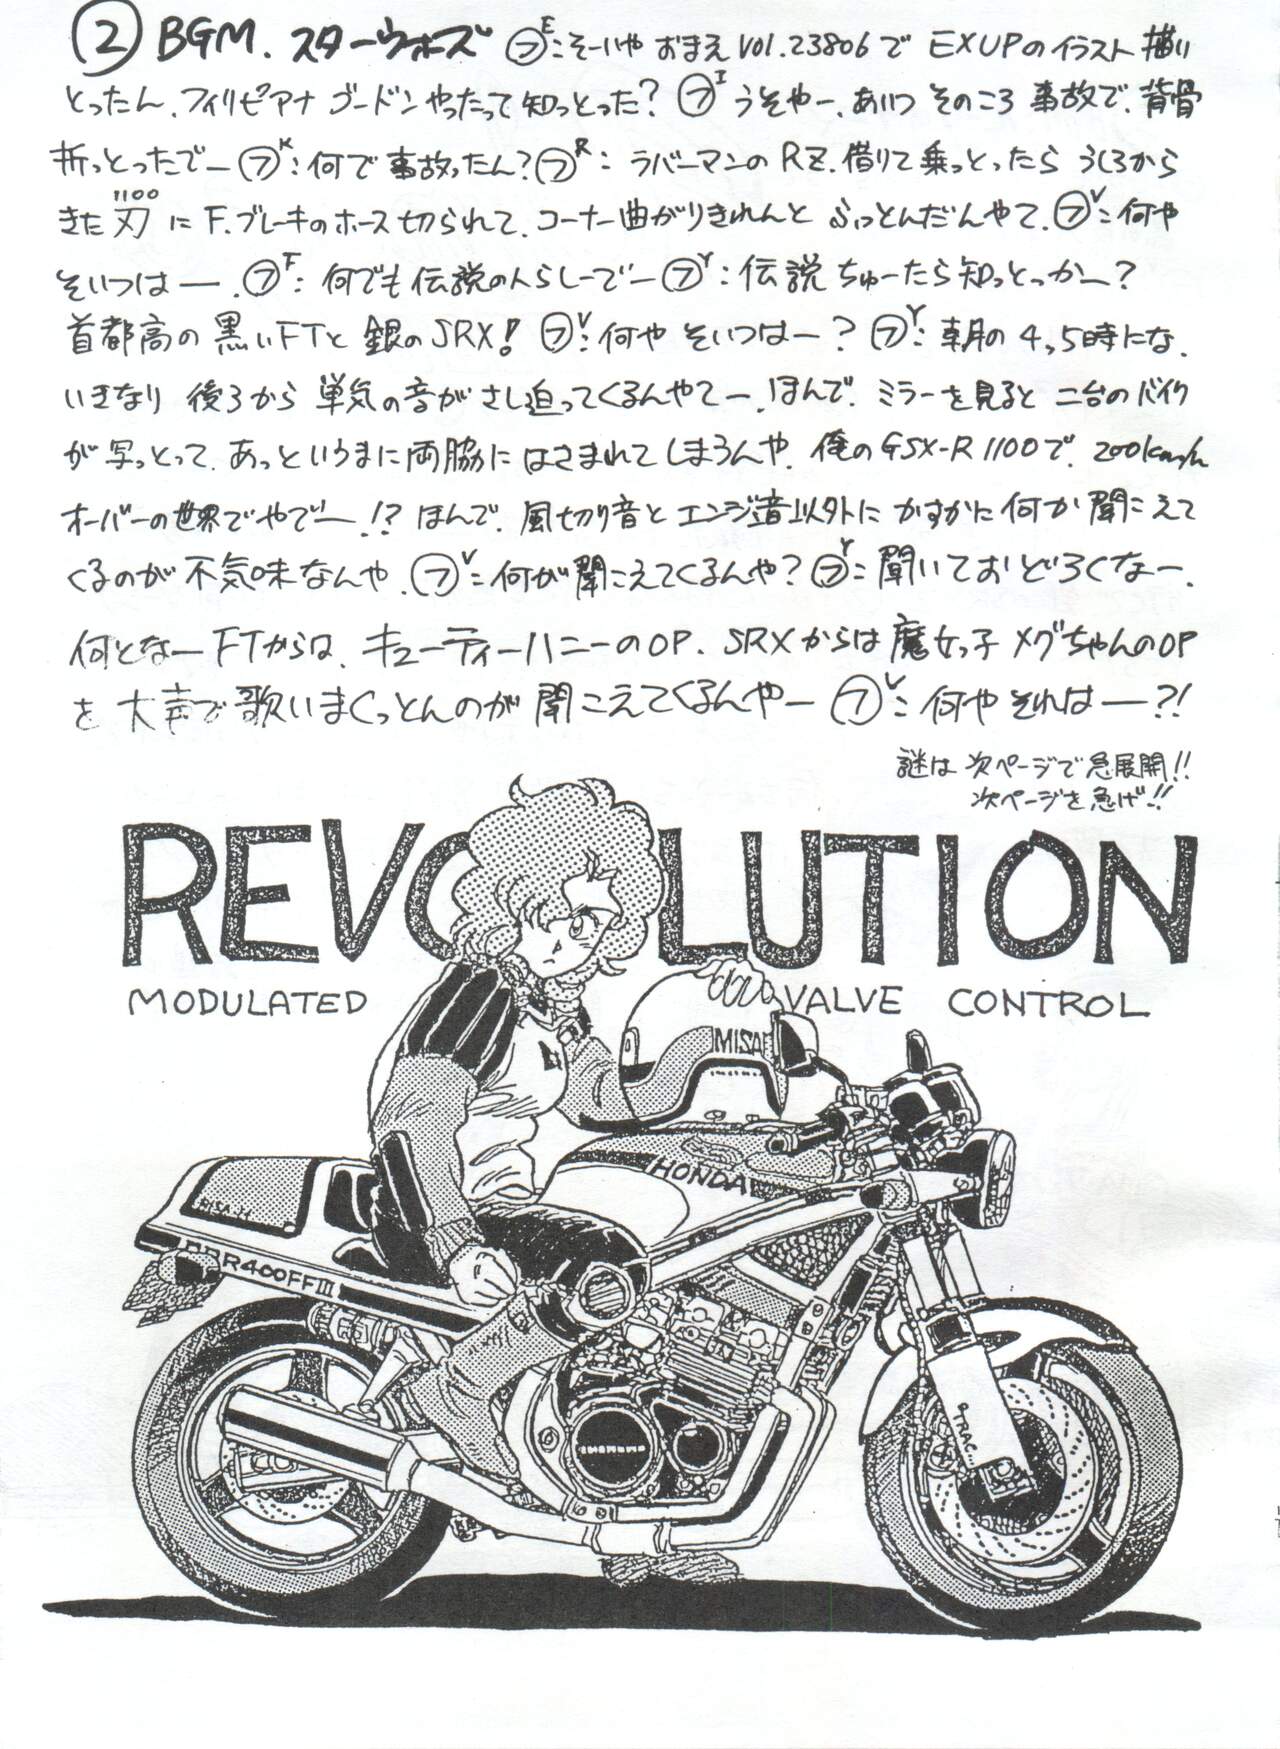 ② BGM. スターウォーズ ㋫E:そーいや おまえ Vol.23806で EXUPのイラスト 描い
とったん、フィリピアナ ゴードンやったって知っとった? ㋫I うそやー、あいつ そのころ 事故で、背骨
折っとったでー ㋫K:何で事故ったん? ㋫R: ラバーマンのRZ.借りて乗っとったら うしろから
1100
きた刃にF.ブレーキのホース切られて、コーナー曲がりきれんと ふっとんだんやて、㋫V:何や
そいつはー. ㋫F:何でも伝説の人らしーでー ㋫Y:伝説 ちゅーたら知っとっかー?
首都高の黒いFTと 銀のSRX! ㋫V:何や そいつはー? ㋫Y:朝の 4,5時にな、
いきなり 後ろから 単気の音が さし迫ってくるんやてー、ほんで、ミラーを見ると 二台のバイク
が 写っとって、あっというまに両脇に はさまれて しまうんや、俺のGSX-R 1100で、200km/h
オーバーの世界でやでー!? ほんで、風切り音と エンジン音以外に かすかに何か聞こえて
くるのが 不気味なんや、㋫V:何が聞こえてくるんや? ㋫Y:聞いておどろくなー、
何となーFTからは、キューティーハニーのOP、SRXからは魔女っ子 メグちゃんのOP
を 大声で歌いまくっとんのが 聞こえてくるんやー ㋫V:何や それはー?!
謎は 次ページで急展開!!
次ページを急げー!!
REVOLUTION
MODULATED VALVE CONTROL
MISA
HONDA
400FFIII
HONDA
TRAC